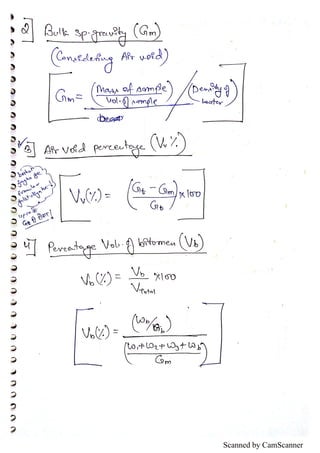 2] Bulk sp. gravity (Gm)
(Considering Air void)
Gm = (Mass of sample / Vol. of sample) / (Density of water)
3] Air void percentage (Vv %)
Vv (%) = (Gt - Gm / Gt) × 100
4] Percentage Vol. of bitumen (Vb)
Vb (%) = Vb / VTotal × 100
Vb (%) = (Wb/Gb) / (W1 + W2 + W3 + Wb / Gm)
Scanned by CamScanner